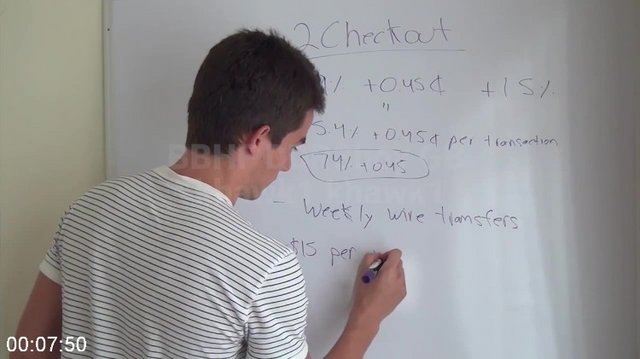 2Checkout
% +0.45¢ +1.5%
5.4% +0.45¢ per transaction
7.4% +0.45
- Weekly wire transfers
$15 per
00:07:50